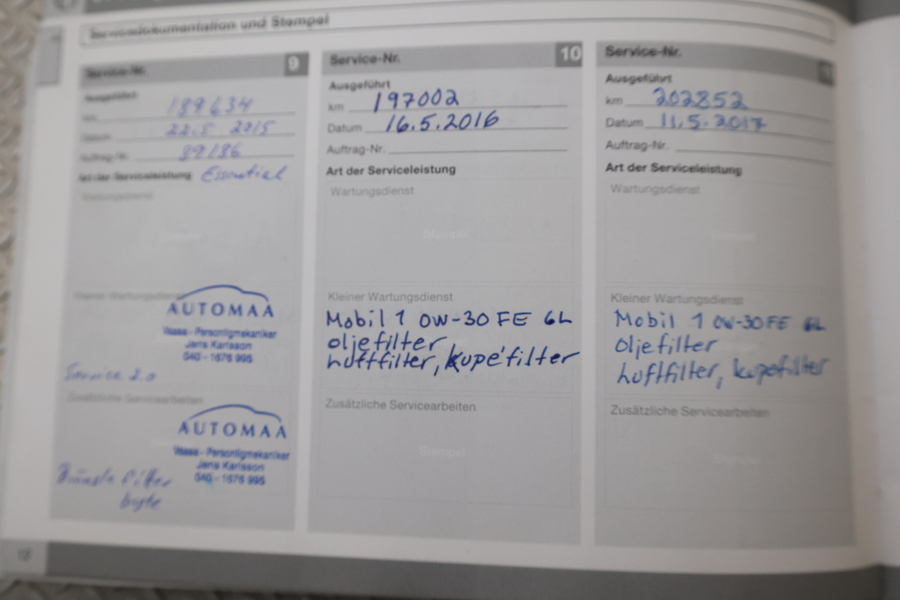 Servicedokumentation und Stempel
Service-Nr. 9
Ausgeführt
km 189634
Datum 22.5 2015
Auftrag-Nr. 89186
Art der Serviceleistung Essential
Wartungsdienst
Stempel
Kleiner Wartungsdienst
AUTOMAA
Vaasa - Personligmekaniker
Jens Karlsson
040 - 1676 995
Service 2.0
Zusätzliche Servicearbeiten
AUTOMAA
Vaasa - Personligmekaniker
Jens Karlsson
040 - 1676 995
Bränsle filter
byte
Service-Nr. 10
Ausgeführt
km 197002
Datum 16.5.2016
Auftrag-Nr.
Art der Serviceleistung
Wartungsdienst
Stempel
Kleiner Wartungsdienst
Mobil 1 0W-30 FE 6L
oljefilter
luftfilter, kupéfilter
Zusätzliche Servicearbeiten
Stempel
Service-Nr.
Ausgeführt
km 202852
Datum 11.5.2017
Auftrag-Nr.
Art der Serviceleistung
Wartungsdienst
Stempel
Kleiner Wartungsdienst
Mobil 1 0W-30 FE 6L
oljefilter
luftfilter, kupéfilter
Zusätzliche Servicearbeiten